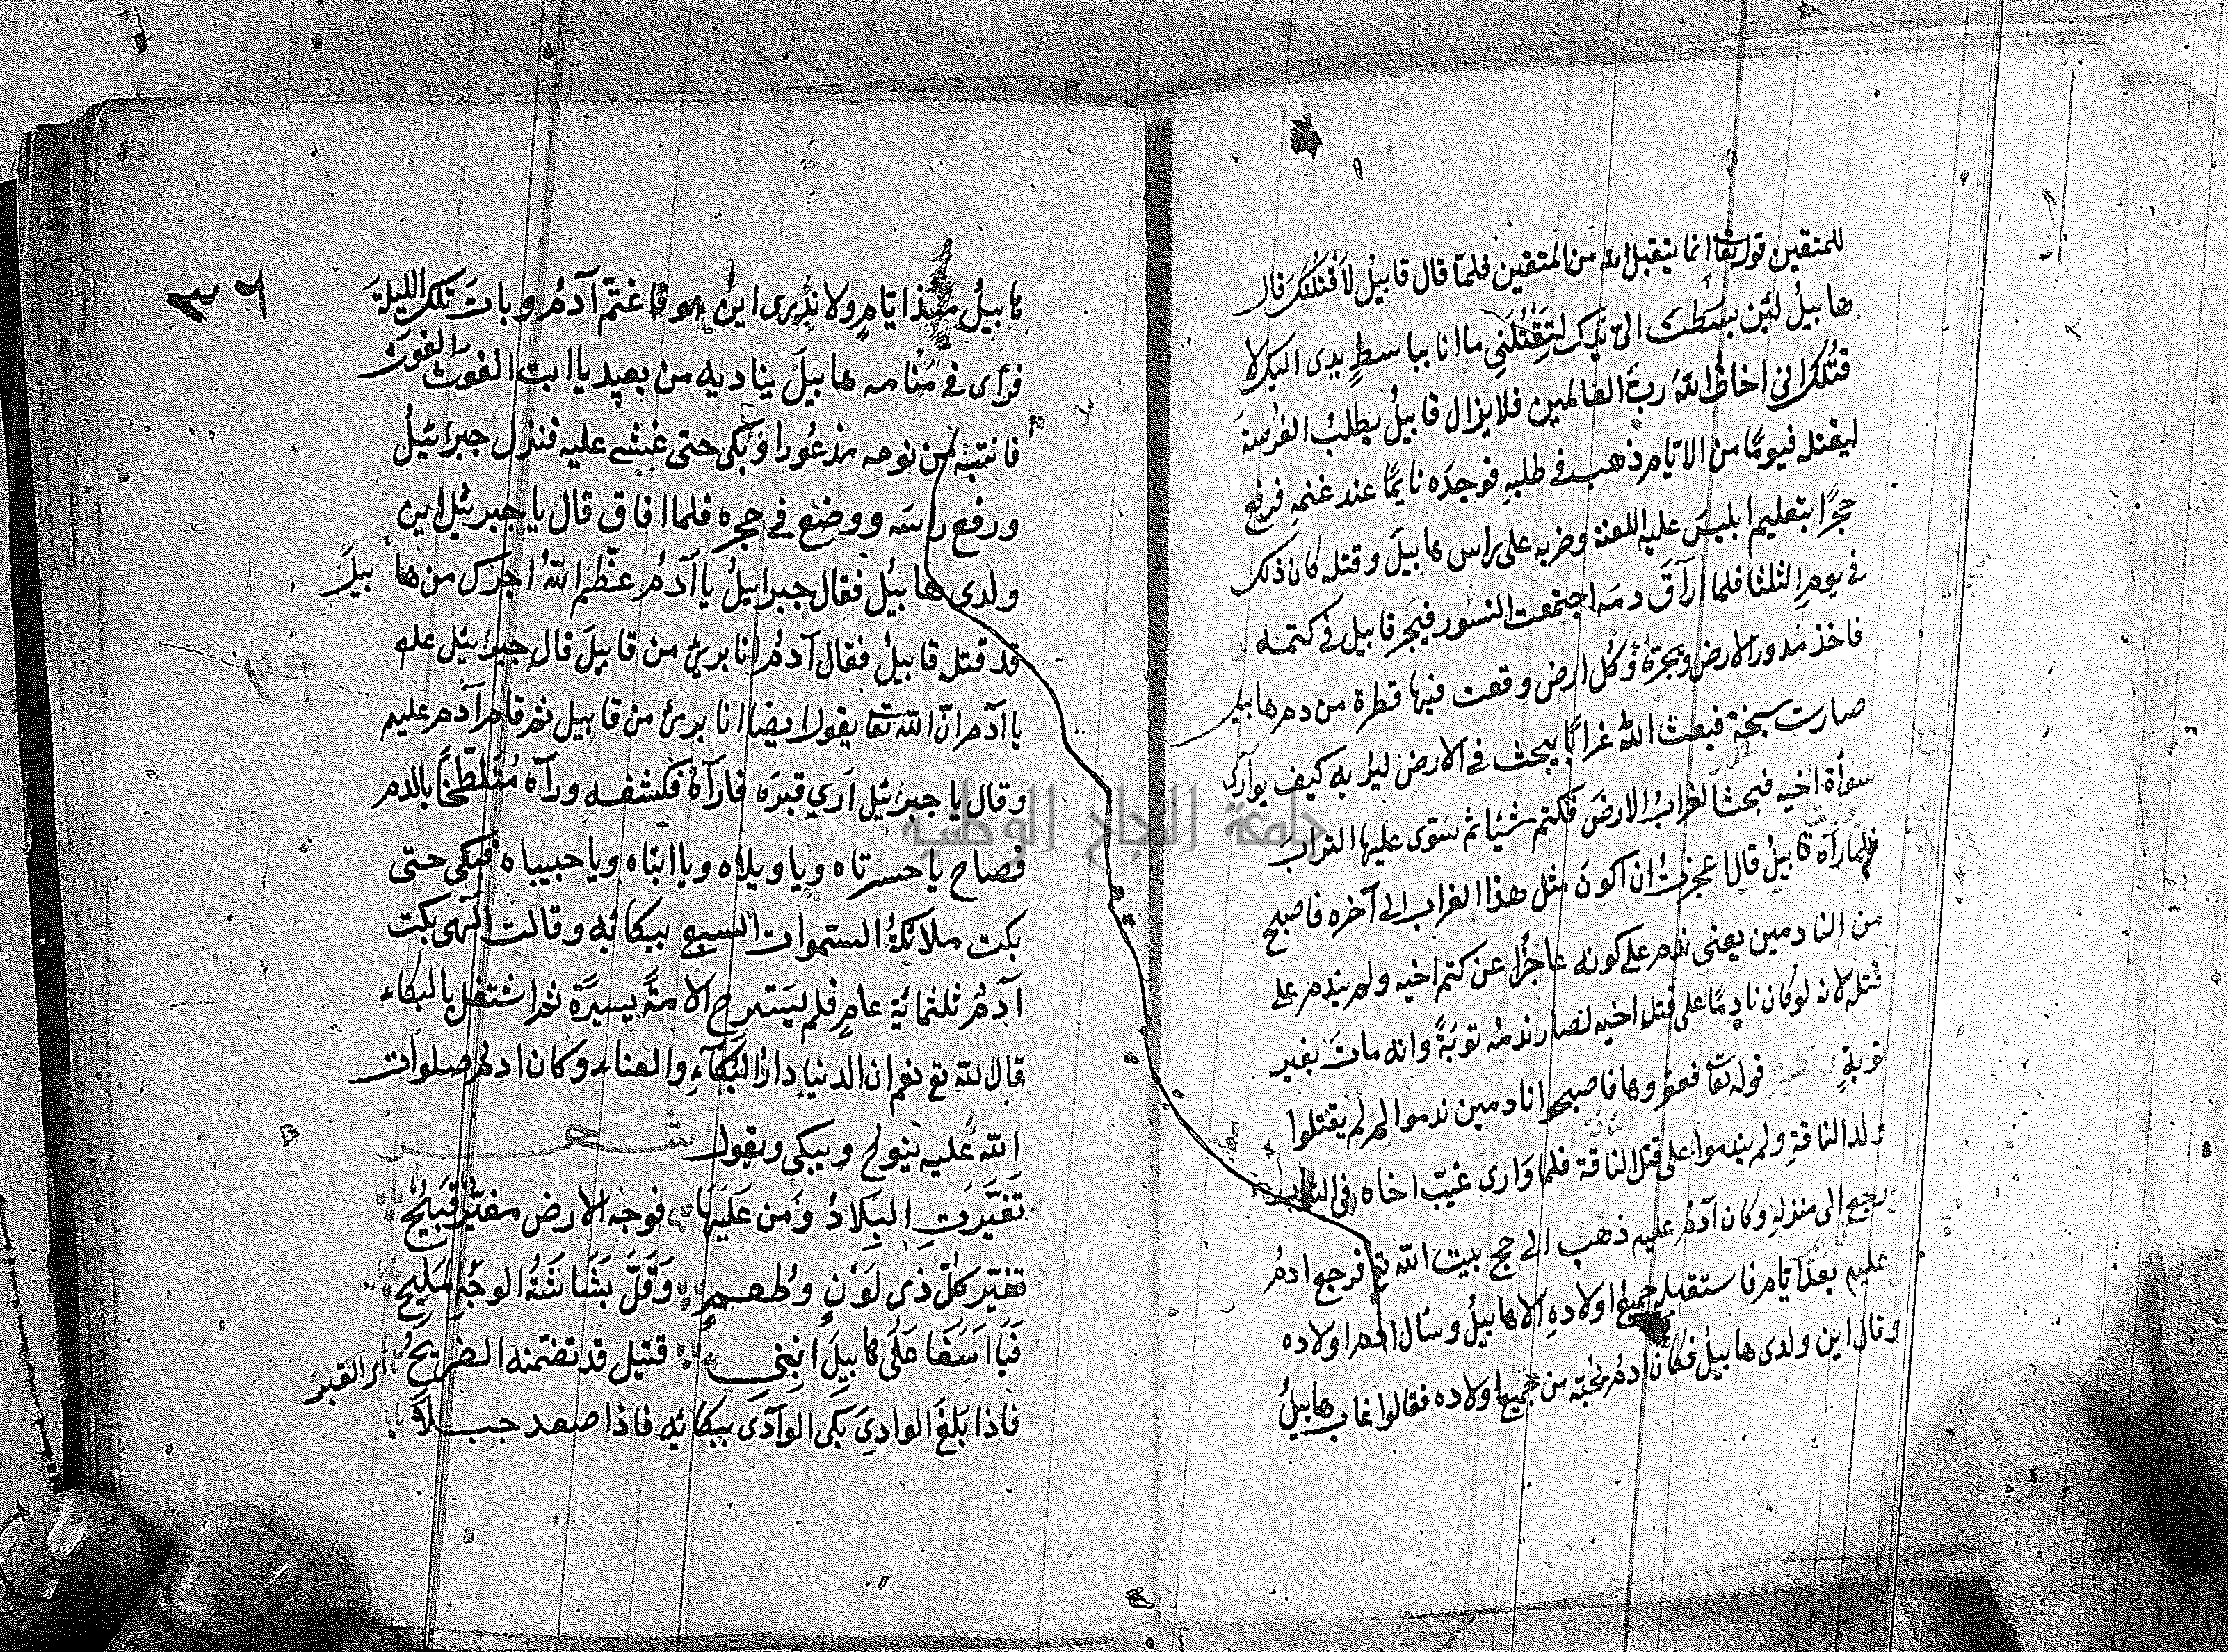 للمتقين قوله تعا انما يتقبل الله من المتقين فلمّا قال قابيلُ لاَقْتُلُنَّكَ قال
هابيلُ لئِن بسَطتَ الىّ يدك لتَقْتُلَنِي ما انا بباسطٍ يدى اليك لا
قتلك انى اخافُ اللّٰهَ ربَّ العالمين فلا يزال قابيلُ يطلبُ الفُرصةَ
ليقتله فيومًا من الايّام ذهب فى طلبهِ فوجدَه نايمًا عند غنمهِ فرفع
حجرًا بتعليم ابليسَ عليه اللعنة وضربه على راس هابيلَ وقتله كان ذلك
فى يومِ الثلثا فلما اراَقَ دمَه اجتمعت النسُور فيجر قابيل فى كتمه
فاخذ مدور الارض وكل ارض وقعت فيها قطرة من دم هابيل
صارت سبخة فبعث اللّٰهُ غرابًا يبحث فى الارض ليُريه كيف يوارى
سوأة اخيه فبحث الغرابُ الارضَ فكتم شيئا ثم سَتوى عليها التراب
فلما رآه قابيلُ قال اعجزتُ ان اكونَ مثل هذا الغراب الى آخره فاصبح
من النادمين يعنى ندم على كونه عاجزًا عن كتم اخيه ولم يندم على
قتله لانه لو كان نادمًا على قتل اخيه لصار ندمُه توبَةً وانه مات بغير
توبةٍ قوله تعا فعقروها فاصبحوا نادمين ندموا لِمَ لم يقتلوا
ولد الناقةِ ولم يندموا على قتل الناقة فلما وَارى غيّب اخاه فى التراب
رجع الى منزلهِ وكان آدمُ عليه ذهب الى حج بيت اللّٰه تع فرجع ادمُ
عليه بعد ايّام فاستقبله جميعُ اولادِهِ الا هابيلُ وسأل ادم اولاده
وقال اين ولدى هابيلُ فكان ادمُ يُحبّه من جميع اولاده فقالوا غاب هابيلُ
هابيلُ منذ ايّامٍ ولا ندرى اين هو فاغتمّ آدمُ وباتَ تلك الليلةَ
فرأى فى منامه هابيلَ يناديه من بعيد يا ابت الغوث الغوث
فانتبهَ من نومه مذعُورا وَبَكى حتى غشى عليه فنزل جبرئيلُ
ورفع راسَه ووضع فى حجره فلما افاق قال يا جبرئيل اين
ولدى هابيُل فقال جبرايلُ يا آدمُ عظّم اللّٰهُ اجرك من هابيلَ
قد قتله قابيلُ فقال آدمُ انا برئٌ من قابيلَ قال جبرئيل عله
يا آدم انّ اللّٰه تعا يقول ايضا انا برئ من قابيل ثم قام آدم عليه
وقال يا جبرئيل اَرِنى قبرَه فارآهُ فكشفه ورآه مُتَلَطّخًا بالدم
فصاح يا حسرتاه ويا ويلاه ويا ابناه ويا حبيباه فبكى حتى
بكت ملائكةُ السموات السبع ببكائه وقالت الهى بكت
آدمُ ثلثمائة عامٍ فلم يَسترح الا مدّةً يسيرَةً ثم اشتغل بالبكاء
قال اللّٰه تع نعم ان الدنيا دارُ البُكَآءِ والعناء وكان ادمُ صلوات
اللّٰه عليه ينوح ويبكى ويقول شعر
تَغَيَّرَتِ البِلَادُ وَمَن عَلَيهَا فوجه الارض مغبّرٌ قَبيحُ
تغيّر كلّ ذى لَوْنٍ وطعمٍ وَقَلَّ بَشَاشَةُ الوجهِ مَليحُ
فَيَا اَسَفَا عَلَى هَابِيلَ ابْنِى قتيل قد تضمّنه الضريحُ اى القبر
فاذا بَلَغَ الوادِىَ بَكَى الوآدى ببكائه فاذا صعد جبلاً
جامعة النجاح الوطنية